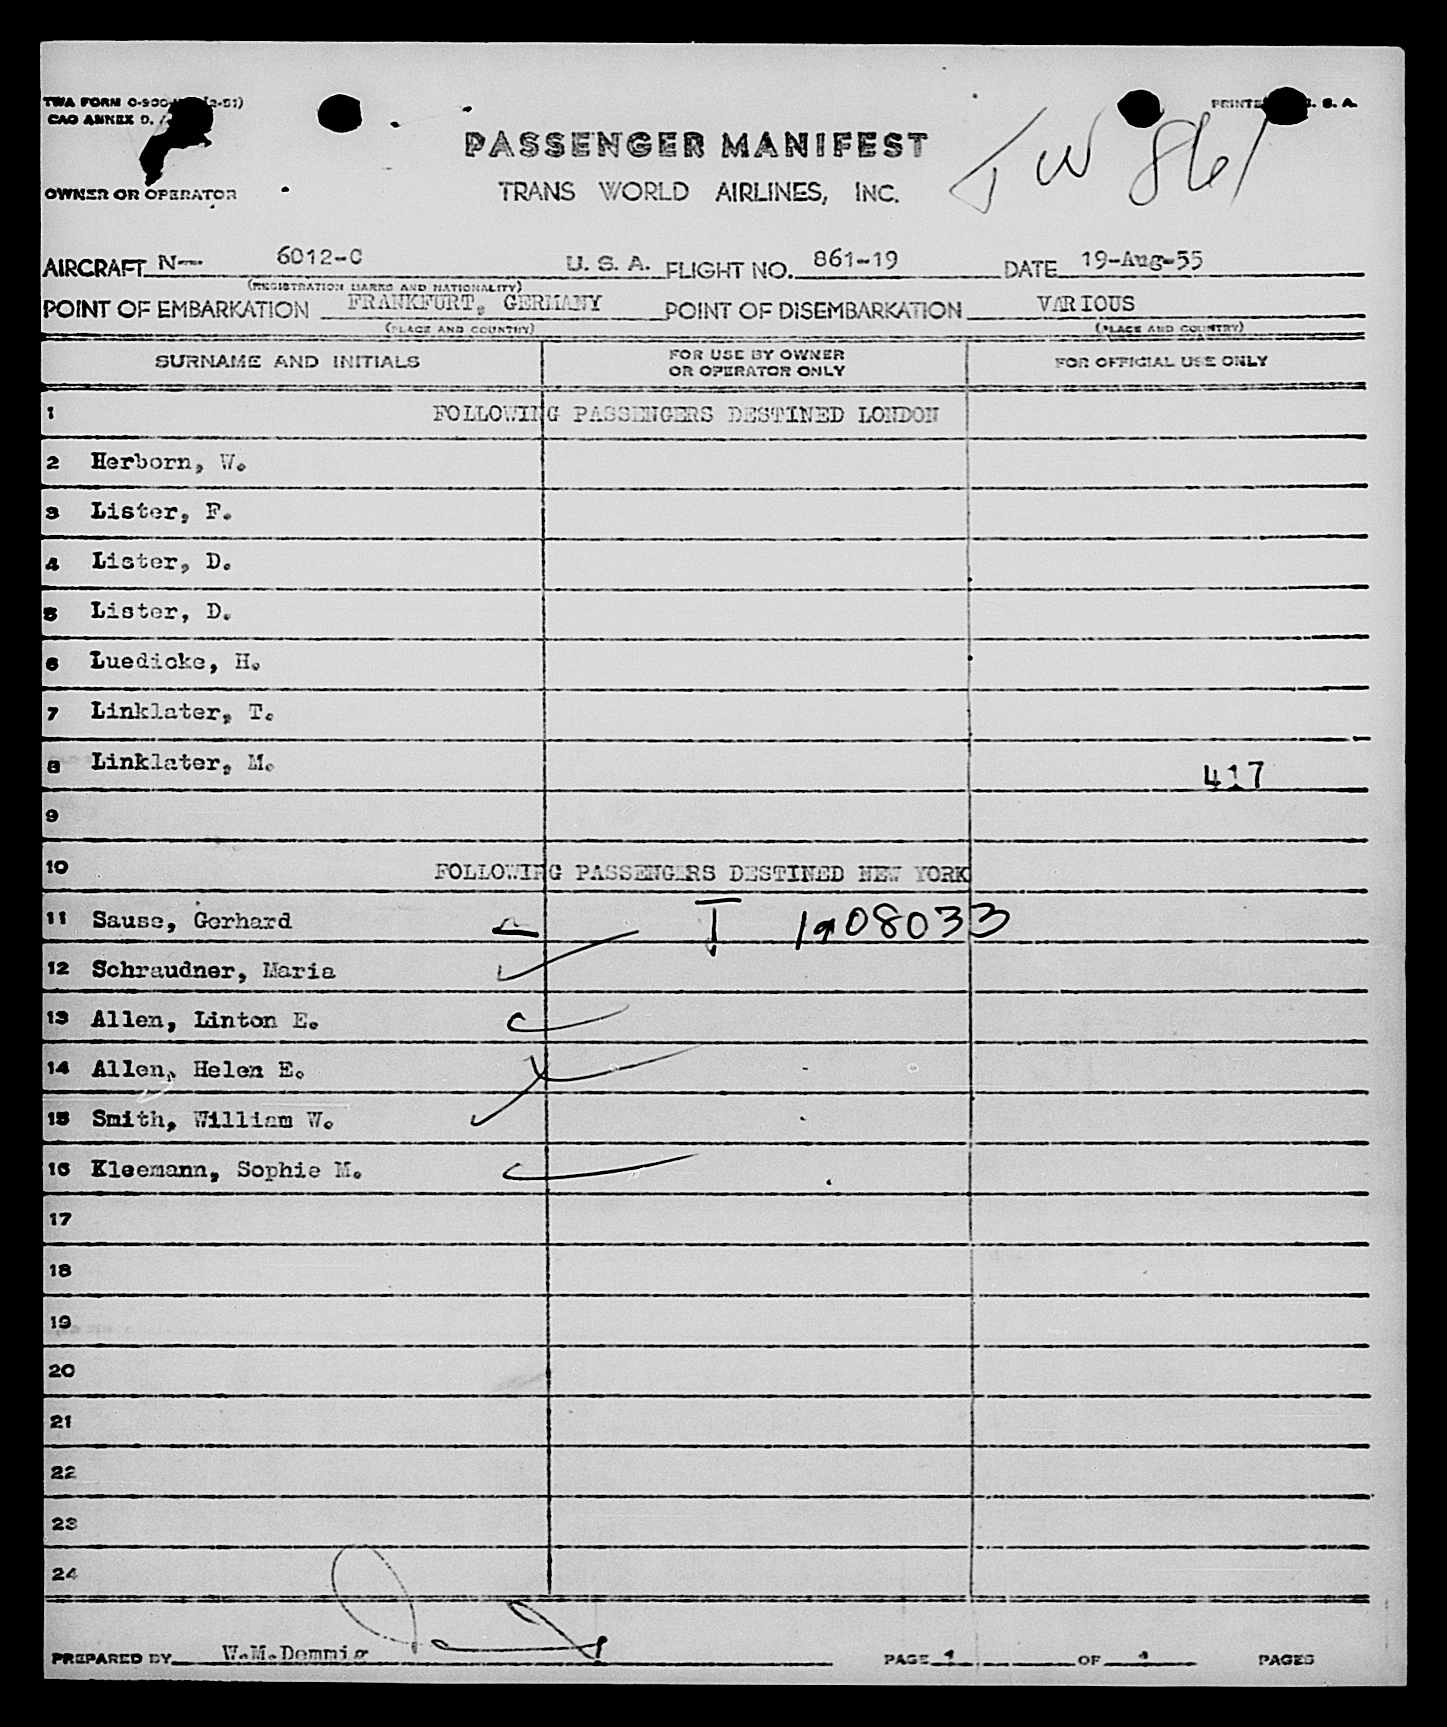 TWA FORM O-900 (2-51)
CAO ANNEX D.
PRINTE S. A.
PASSENGER MANIFEST
TRANS WORLD AIRLINES, INC.
TW 861
OWNER OR OPERATOR
AIRCRAFT N-- 6012-C U. S. A. FLIGHT NO. 861-19 DATE 19-Aug-55
(REGISTRATION MARKS AND NATIONALITY)
POINT OF EMBARKATION FRANKFURT, GERMANY POINT OF DISEMBARKATION VARIOUS
(PLACE AND COUNTRY) (PLACE AND COUNTRY)
SURNAME AND INITIALS FOR USE BY OWNER OR OPERATOR ONLY FOR OFFICIAL USE ONLY
1 FOLLOWING PASSENGERS DESTINED LONDON
2 Herborn, W.
3 Lister, F.
4 Lister, D.
5 Lister, D.
6 Luedicke, H.
7 Linklater, T.
8 Linklater, M. 417
9
10 FOLLOWING PASSENGERS DESTINED NEW YORK
11 Sause, Gerhard
12 Schraudner, Maria
13 Allen, Linton E.
14 Allen, Helen E.
15 Smith, William W.
16 Kleemann, Sophie M.
17
18
19
20
21
22
23
24
PREPARED BY W.M.Demmig PAGE 1 OF 1 PAGES